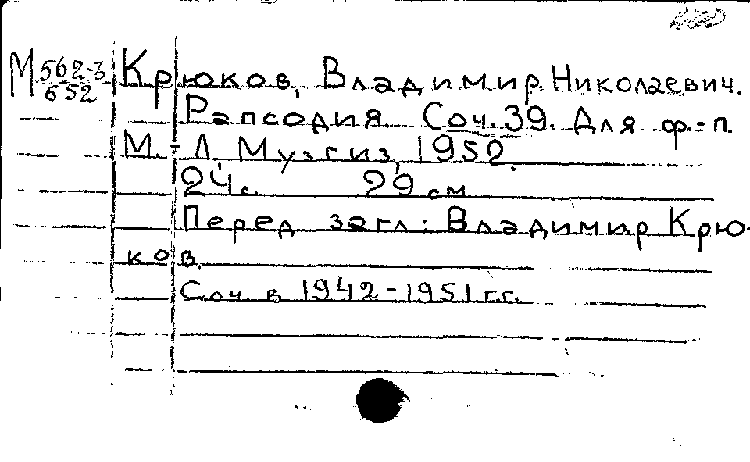 М 562-3
652
Крюков, Владимир Николаевич.
Рапсодия Соч. 39. Для ф.-п.
М.-Л, Музгиз, 1952.
24 с. 29 см
Перед загл: Владимир Крю-
ков.
Соч в 1942-1951 г.г.